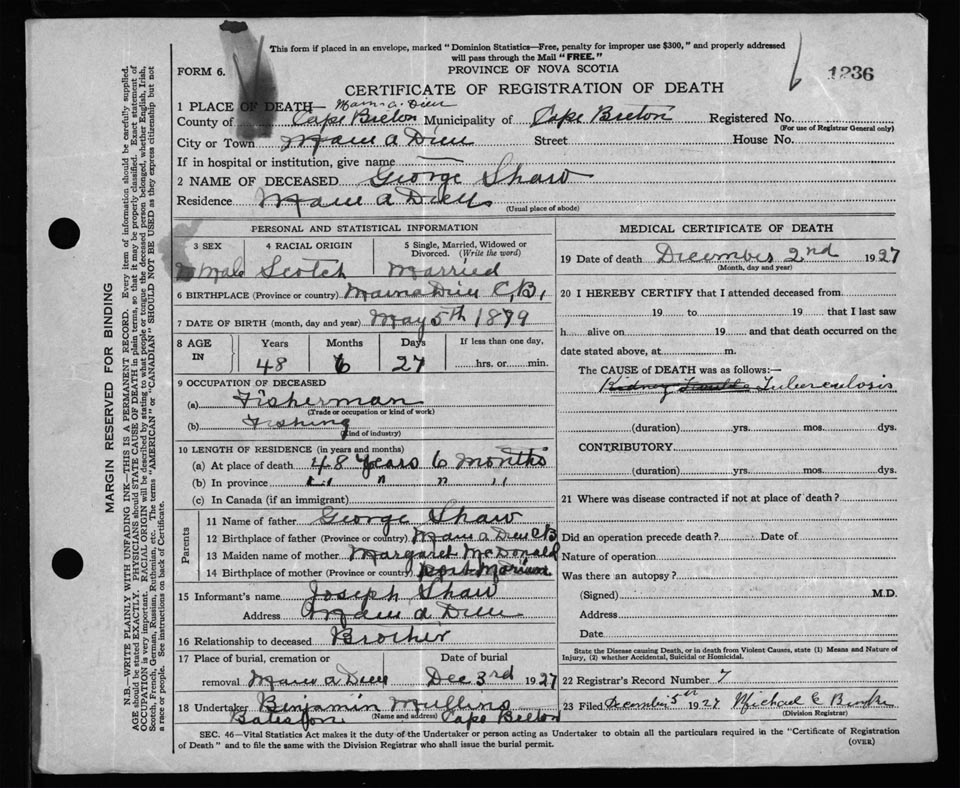 This form if placed in an envelope, marked "Dominion Statistics—Free, penalty for improper use $300," and properly addressed
will pass through the Mail "FREE."
FORM 6.
PROVINCE OF NOVA SCOTIA
1236
CERTIFICATE OF REGISTRATION OF DEATH
1 PLACE OF DEATH— Main-a-Dieu
County of Cape Breton Municipality of Cape Breton Registered No.
(For use of Registrar General only)
City or Town Main a Dieu Street House No.
If in hospital or institution, give name —
2 NAME OF DECEASED George Shaw
Residence Main a Dieu
(Usual place of abode)
PERSONAL AND STATISTICAL INFORMATION
3 SEX 4 RACIAL ORIGIN 5 Single, Married, Widowed or Divorced. (Write the word)
Male Scotch Married
6 BIRTHPLACE (Province or country) Main a Dieu C.B.
7 DATE OF BIRTH (month, day and year) May 5th 1879
8 AGE IN Years Months Days If less than one day,
48 6 27 hrs. or min.
9 OCCUPATION OF DECEASED
(a) Fisherman
(Trade or occupation or kind of work)
(b) Fishing
(Kind of industry)
10 LENGTH OF RESIDENCE (in years and months)
(a) At place of death 48 years 6 Months
(b) In province " " " "
(c) In Canada (if an immigrant)
Parents
11 Name of father George Shaw
12 Birthplace of father (Province or country) Main a Dieu CB
13 Maiden name of mother Margaret McDonald
14 Birthplace of mother (Province or country)
15 Informant's name Joseph Shaw
Address Main a Dieu
16 Relationship to deceased Brother
17 Place of burial, cremation or Date of burial
removal Main a Dieu Dec 3rd 1927
18 Undertaker Benjamin Mullins
(Name and address)
Bateston Cape Breton
MEDICAL CERTIFICATE OF DEATH
19 Date of death December 2nd 1927
(Month, day and year)
20 I HEREBY CERTIFY that I attended deceased from
19 to 19 that I last saw
h alive on 19 and that death occurred on
date stated above, at m.
The CAUSE of DEATH was as follows:—
Kidney Trouble Tuberculosis
(duration) yrs. mos. dys.
CONTRIBUTORY
(duration) yrs. mos. dys.
21 Where was disease contracted if not at place of death?
Did an operation precede death? Date of
Nature of operation
Was there an autopsy?
(Signed) M.D.
Address
Date
State the Disease causing Death, or in death from Violent Causes, state (1) Means and Nature of
Injury, (2) whether Accidental, Suicidal or Homicidal.
22 Registrar's Record Number 7
23 Filed December 5th 1927 Michael
(Division Registrar)
SEC. 46—Vital Statistics Act makes it the duty of the Undertaker or person acting as Undertaker to obtain all the particulars required in the "Certificate of Registration
of Death" and to file the same with the Division Registrar who shall issue the burial permit.
(OVER)
MARGIN RESERVED FOR BINDING
N.B.—WRITE PLAINLY WITH UNFADING INK—THIS IS A PERMANENT RECORD. Every item of information should be carefully supplied.
AGE should be stated EXACTLY. PHYSICIANS should STATE CAUSE OF DEATH in plain terms, so that it may be properly classified. Exact statement of
OCCUPATION is very important. RACIAL ORIGIN will be described by stating to what people or tongue the deceased person belonged, whether English, Irish,
Scotch, French, German, Russian, Ruthenian, etc. The terms "AMERICAN" or "CANADIAN" SHOULD NOT BE USED as they express citizenship but not
a race or people. See instructions on back of Certificate.